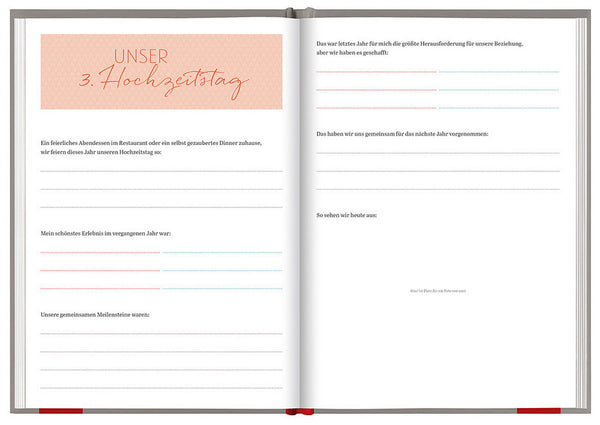 UNSER
3. Hochzeitstag
Ein feierliches Abendessen im Restaurant oder ein selbst gezaubertes Dinner zuhause,
wir feiern dieses Jahr unseren Hochzeitstag so:
Mein schönstes Erlebnis im vergangenen Jahr war:
Unsere gemeinsamen Meilensteine waren:
Das war letztes Jahr für mich die größte Herausforderung für unsere Beziehung,
aber wir haben es geschafft:
Das haben wir uns gemeinsam für das nächste Jahr vorgenommen:
So sehen wir heute aus: